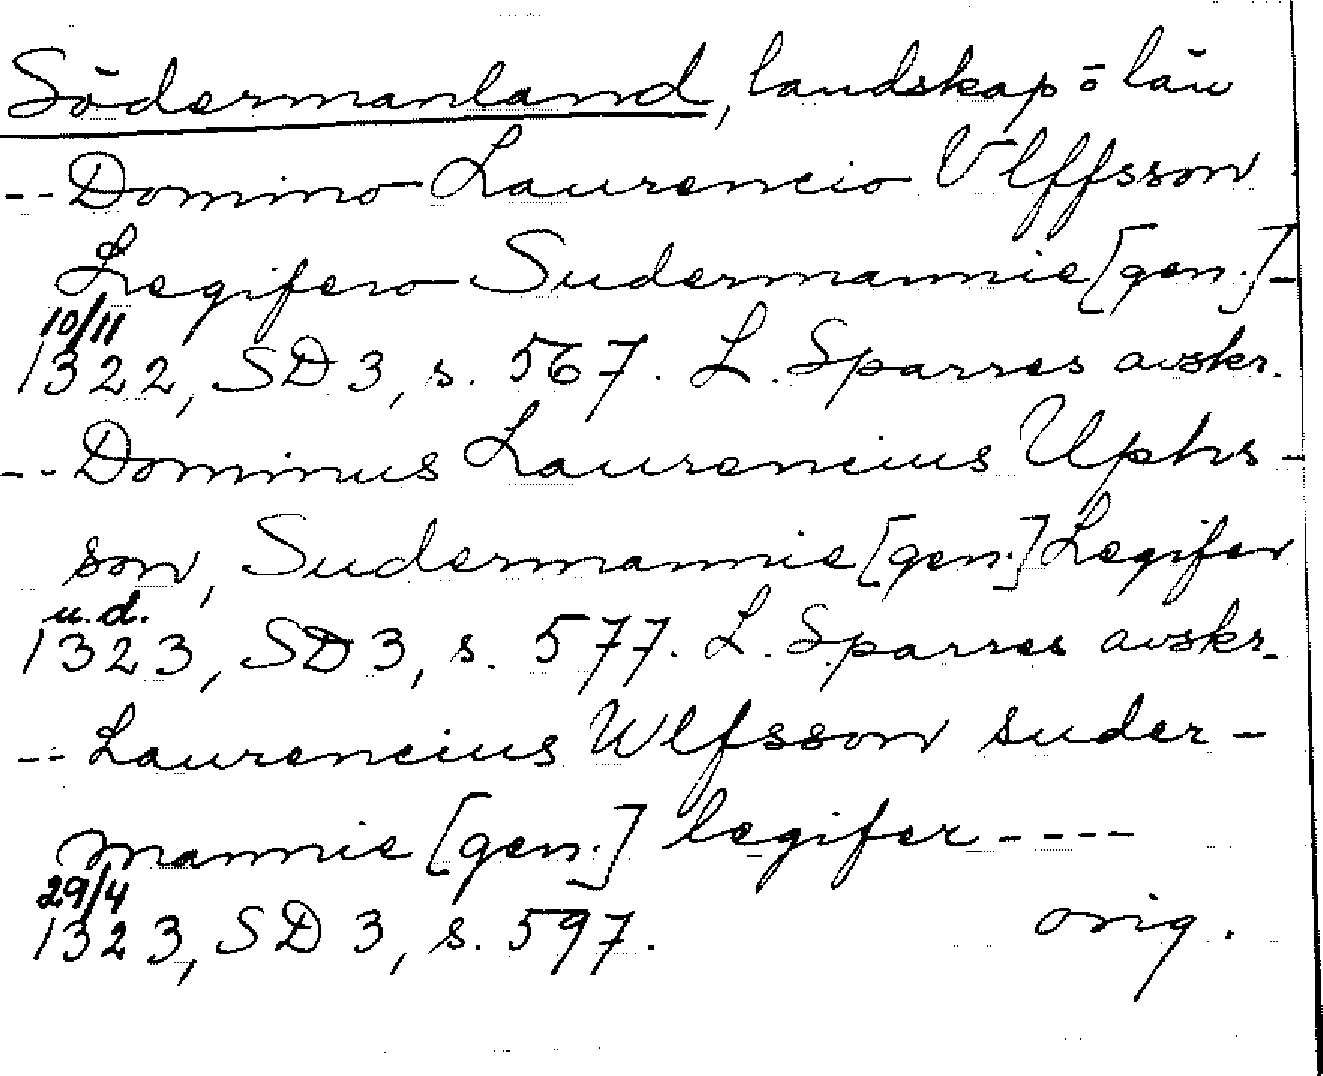 Södermanland, landskap o län
-- Domino Laurencio Vlffsson
Legifero Sudermannie [gen.] -
10/11
1322, SD 3, s. 567. L. Sparres avskr.
-- Dominus Laurencius Ulphs-
son, Sudermannie [gen.] Legifer
u.d.
1323, SD 3, s. 577. L. Sparres avskr.
-- Laurencius Wlfsson suder-
mannie [gen.] legifer ----
29/4
1323, SD 3, s. 597. orig.